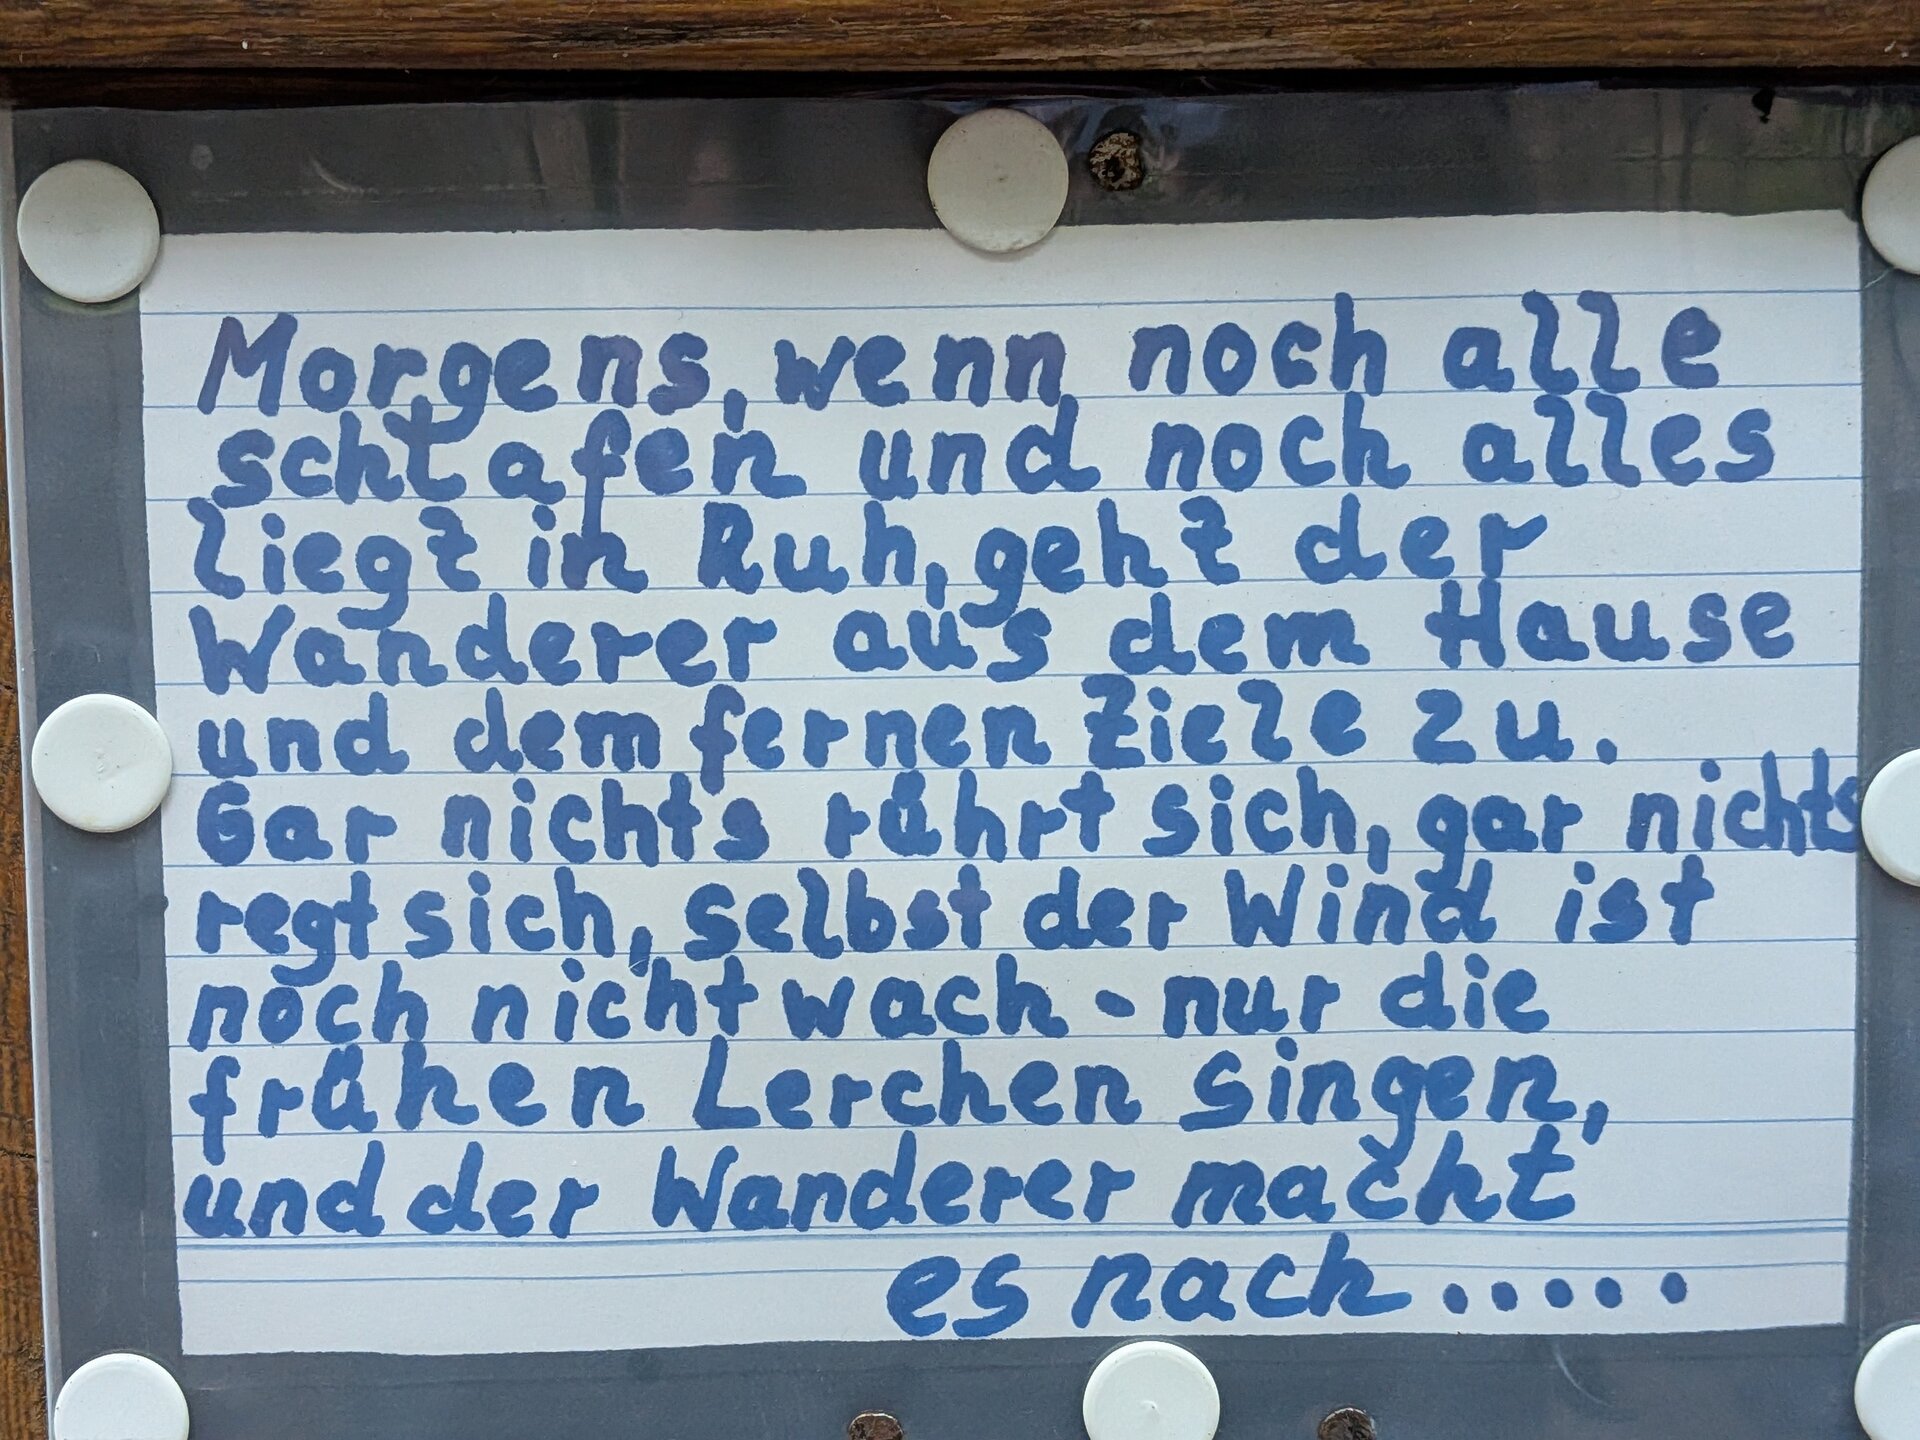 Morgens, wenn noch alle
schlafen und noch alles
liegt in Ruh, geht der
Wanderer aus dem Hause
und dem fernen Ziele zu.
Gar nichts rührt sich, gar nichts
regt sich, selbst der Wind ist
noch nicht wach - nur die
frühen Lerchen singen,
und der Wanderer macht
es nach.....